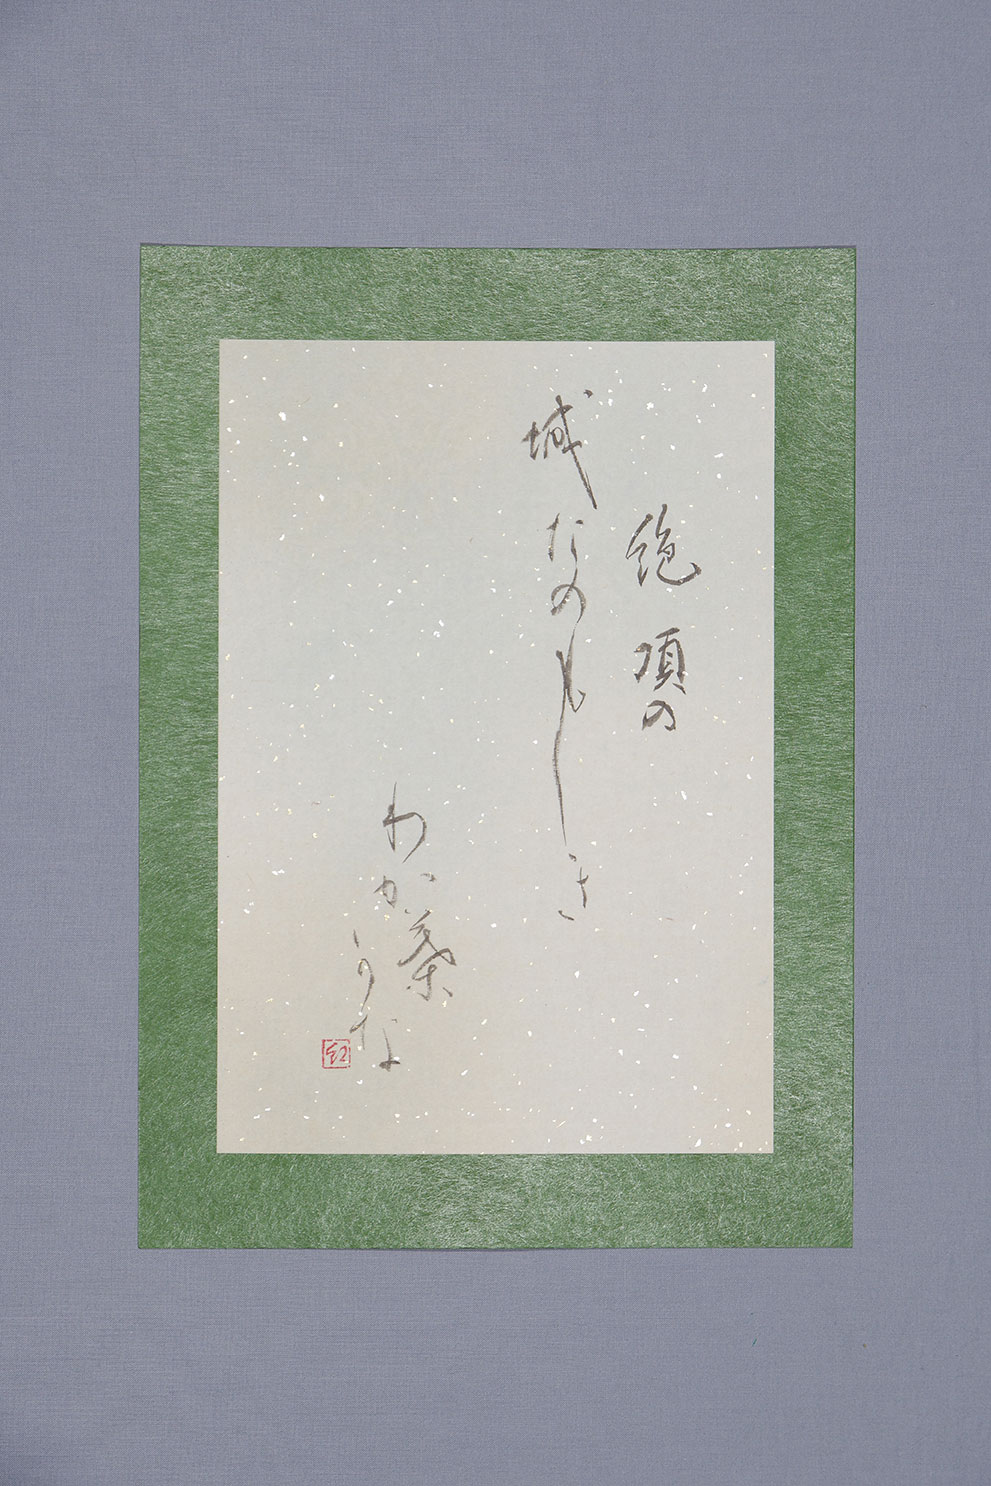 絶頂の
城たのもしき
わか葉
かな